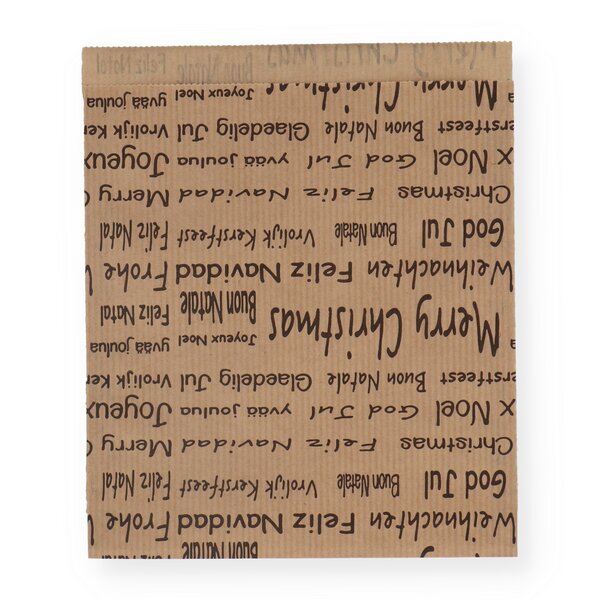 Buon Natale Feliz Natal
Weihnachten Feliz Navidad Frohe
God Jul Buon Natale Vrolijk Kerstfeest Feliz Natal
Christmas Feliz Navidad Merry C
x Noel God Jul yvää joulua Joyeux
erstfeest Buon Natale Glaedelig Jul Vrolijk Ker
Merry Christmas Joyeux Noel yvää joulua
Buon Natale Feliz Natal
Weihnachten Feliz Navidad Frohe
God Jul Buon Natale Vrolijk Kerstfeest Feliz Natal
Christmas Feliz Navidad Merry C
x Noel God Jul yvää joulua Joyeux
erstfeest Buon Natale Glaedelig Jul Vrolijk Ker
Merry Christmas Joyeux Noel yvää joulua
Buon Natale Feliz Natal